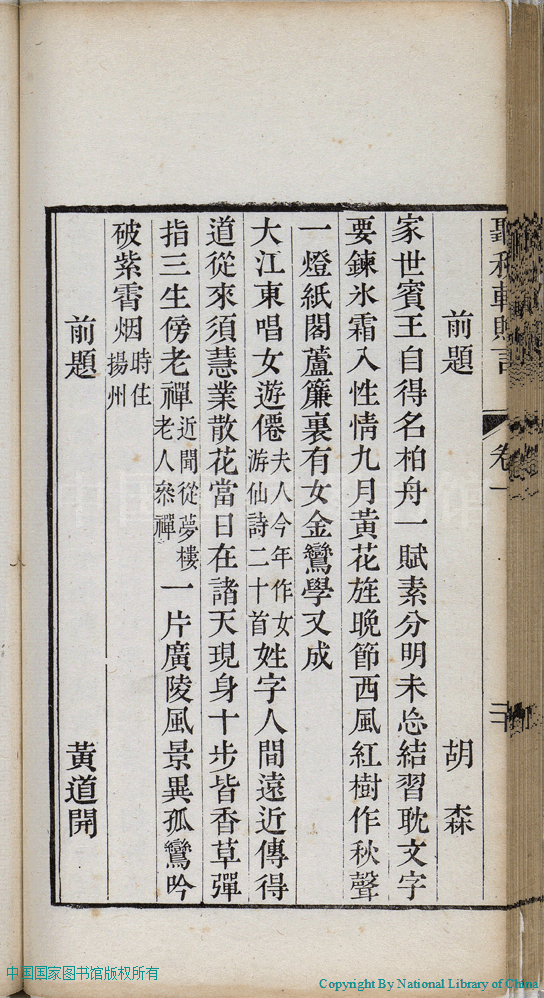 聽秋軒贈言 卷一
前題 胡森
家世賓王自得名柏舟一賦素分明未忘結習耽文字
要鍊氷霜入性情九月黃花旌晚節西風紅樹作秋聲
一燈紙閣蘆簾裏有女金鸞學又成
大江東唱女遊僊夫人今年作女游仙詩二十首姓字人間遠近傳得
道從來須慧業散花當日在諸天現身十步皆香草彈
指三生傍老禪近聞從夢樓老人叅禪一片廣陵風景異孤鸞吟
破紫霄烟時住揚州
前題 黃道開
中国国家图书馆版权所有
Copyright By National Library of China